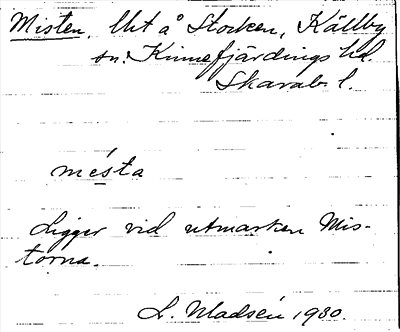 Misten, lht å Storken, Källby
sn. Kinnefjärdings hd.
Skarab. l.
mésta
Ligger vid utmarken Mis-
torna.
L. Madsén 1930.